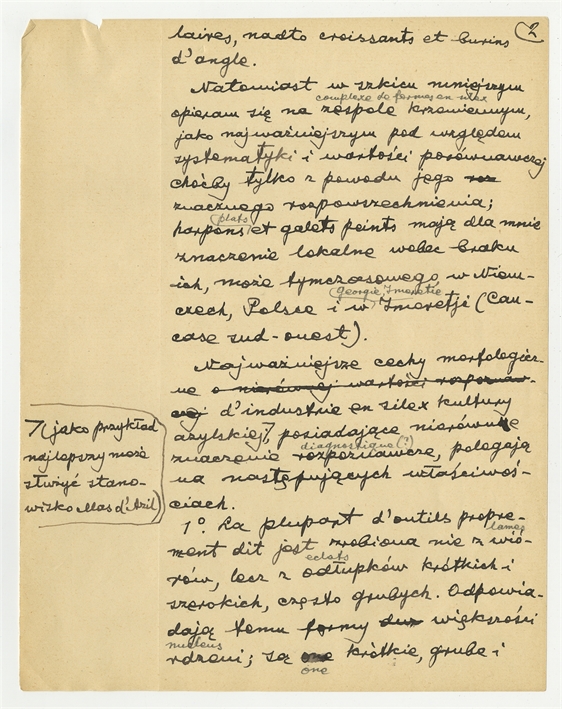 2
laires, nadto croissants et burins
d'angle.
Natomiast w szkicu mniejszym
complexe de formes en silex
opieram się na zespole krzemiennym,
jako najważniejszym pod względem
systematyki i wartości porównawczej
choćby tylko z powodu jego
znacznego rozpowszechnienia;
plats
harpons et galets peints mają dla mnie
znaczenie lokalne wobec braku
ich, może tymczasowego, w Niem-
Georgie, Imeretie
czech, Polsce i w Imeretji (Cau-
case sud-ouest).
Najważniejsze cechy morfologicz-
ne o nierównej wartości rozpoznaw-
czej d'industrie en silex kultury
azylskiej 7, posiadające nierówne
diagnostique (?)
znaczenie rozpoznawcze, polegają
na następujących właściwoś-
ciach.
7 (jako przykład
najlepszy może
służyć stano-
wisko Mas d'Azil)
1º. La plupart d'outils propre-
lames
ment dit jest zrobiona nie z wió-
eclats
rów, lecz z odłupków krótkich i
szerokich, często grubych. Odpowia-
dają temu formy większości
nucleus
rdzeni; są krótkie, grube i
one